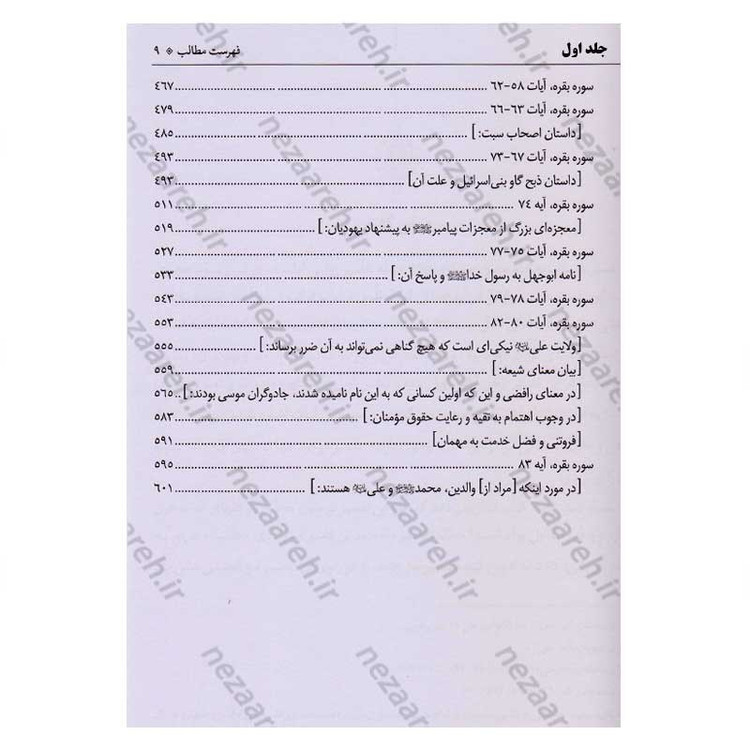 جلد اول
فهرست مطالب ※ ۹
سوره بقره، آیات ۵۸-۶۲ ........ ۴۶۷
سوره بقره، آیات ۶۳-۶۶ ........ ۴۷۹
[داستان اصحاب سبت: ] ........ ۴۸۵
سوره بقره، آیات ۶۷-۷۳ ........ ۴۹۳
[داستان ذبح گاو بنی‌اسرائیل و علت آن] ........ ۴۹۳
سوره بقره، آیه ۷۴ ........ ۵۱۱
[معجزه‌ای بزرگ از معجزات پیامبرﷺ به پیشنهاد یهودیان: ] ........ ۵۱۹
سوره بقره، آیات ۷۵-۷۷ ........ ۵۲۷
[نامه ابوجهل به رسول خداﷺ و پاسخ آن: ] ........ ۵۳۳
سوره بقره، آیات ۷۸-۷۹ ........ ۵۴۳
سوره بقره، آیات ۸۰-۸۲ ........ ۵۵۳
[ولایت علی نیکی‌ای است که هیچ گناهی نمی‌تواند به آن ضرر برساند: ] ........ ۵۵۵
[بیان معنای شیعه: ] ........ ۵۵۹
[در معنای رافضی و این که اولین کسانی که به این نام نامیده شدند، جادوگران موسی بودند: ] .. ۵۶۵
[در وجوب اهتمام به تقیه و رعایت حقوق مؤمنان: ] ........ ۵۸۳
[فروتنی و فضل خدمت به مهمان] ........ ۵۹۱
سوره بقره، آیه ۸۳ ........ ۵۹۵
[در مورد اینکه [مراد از] والدین، محمدﷺ و علی هستند: ] ........ ۶۰۱
nezaareh.ir